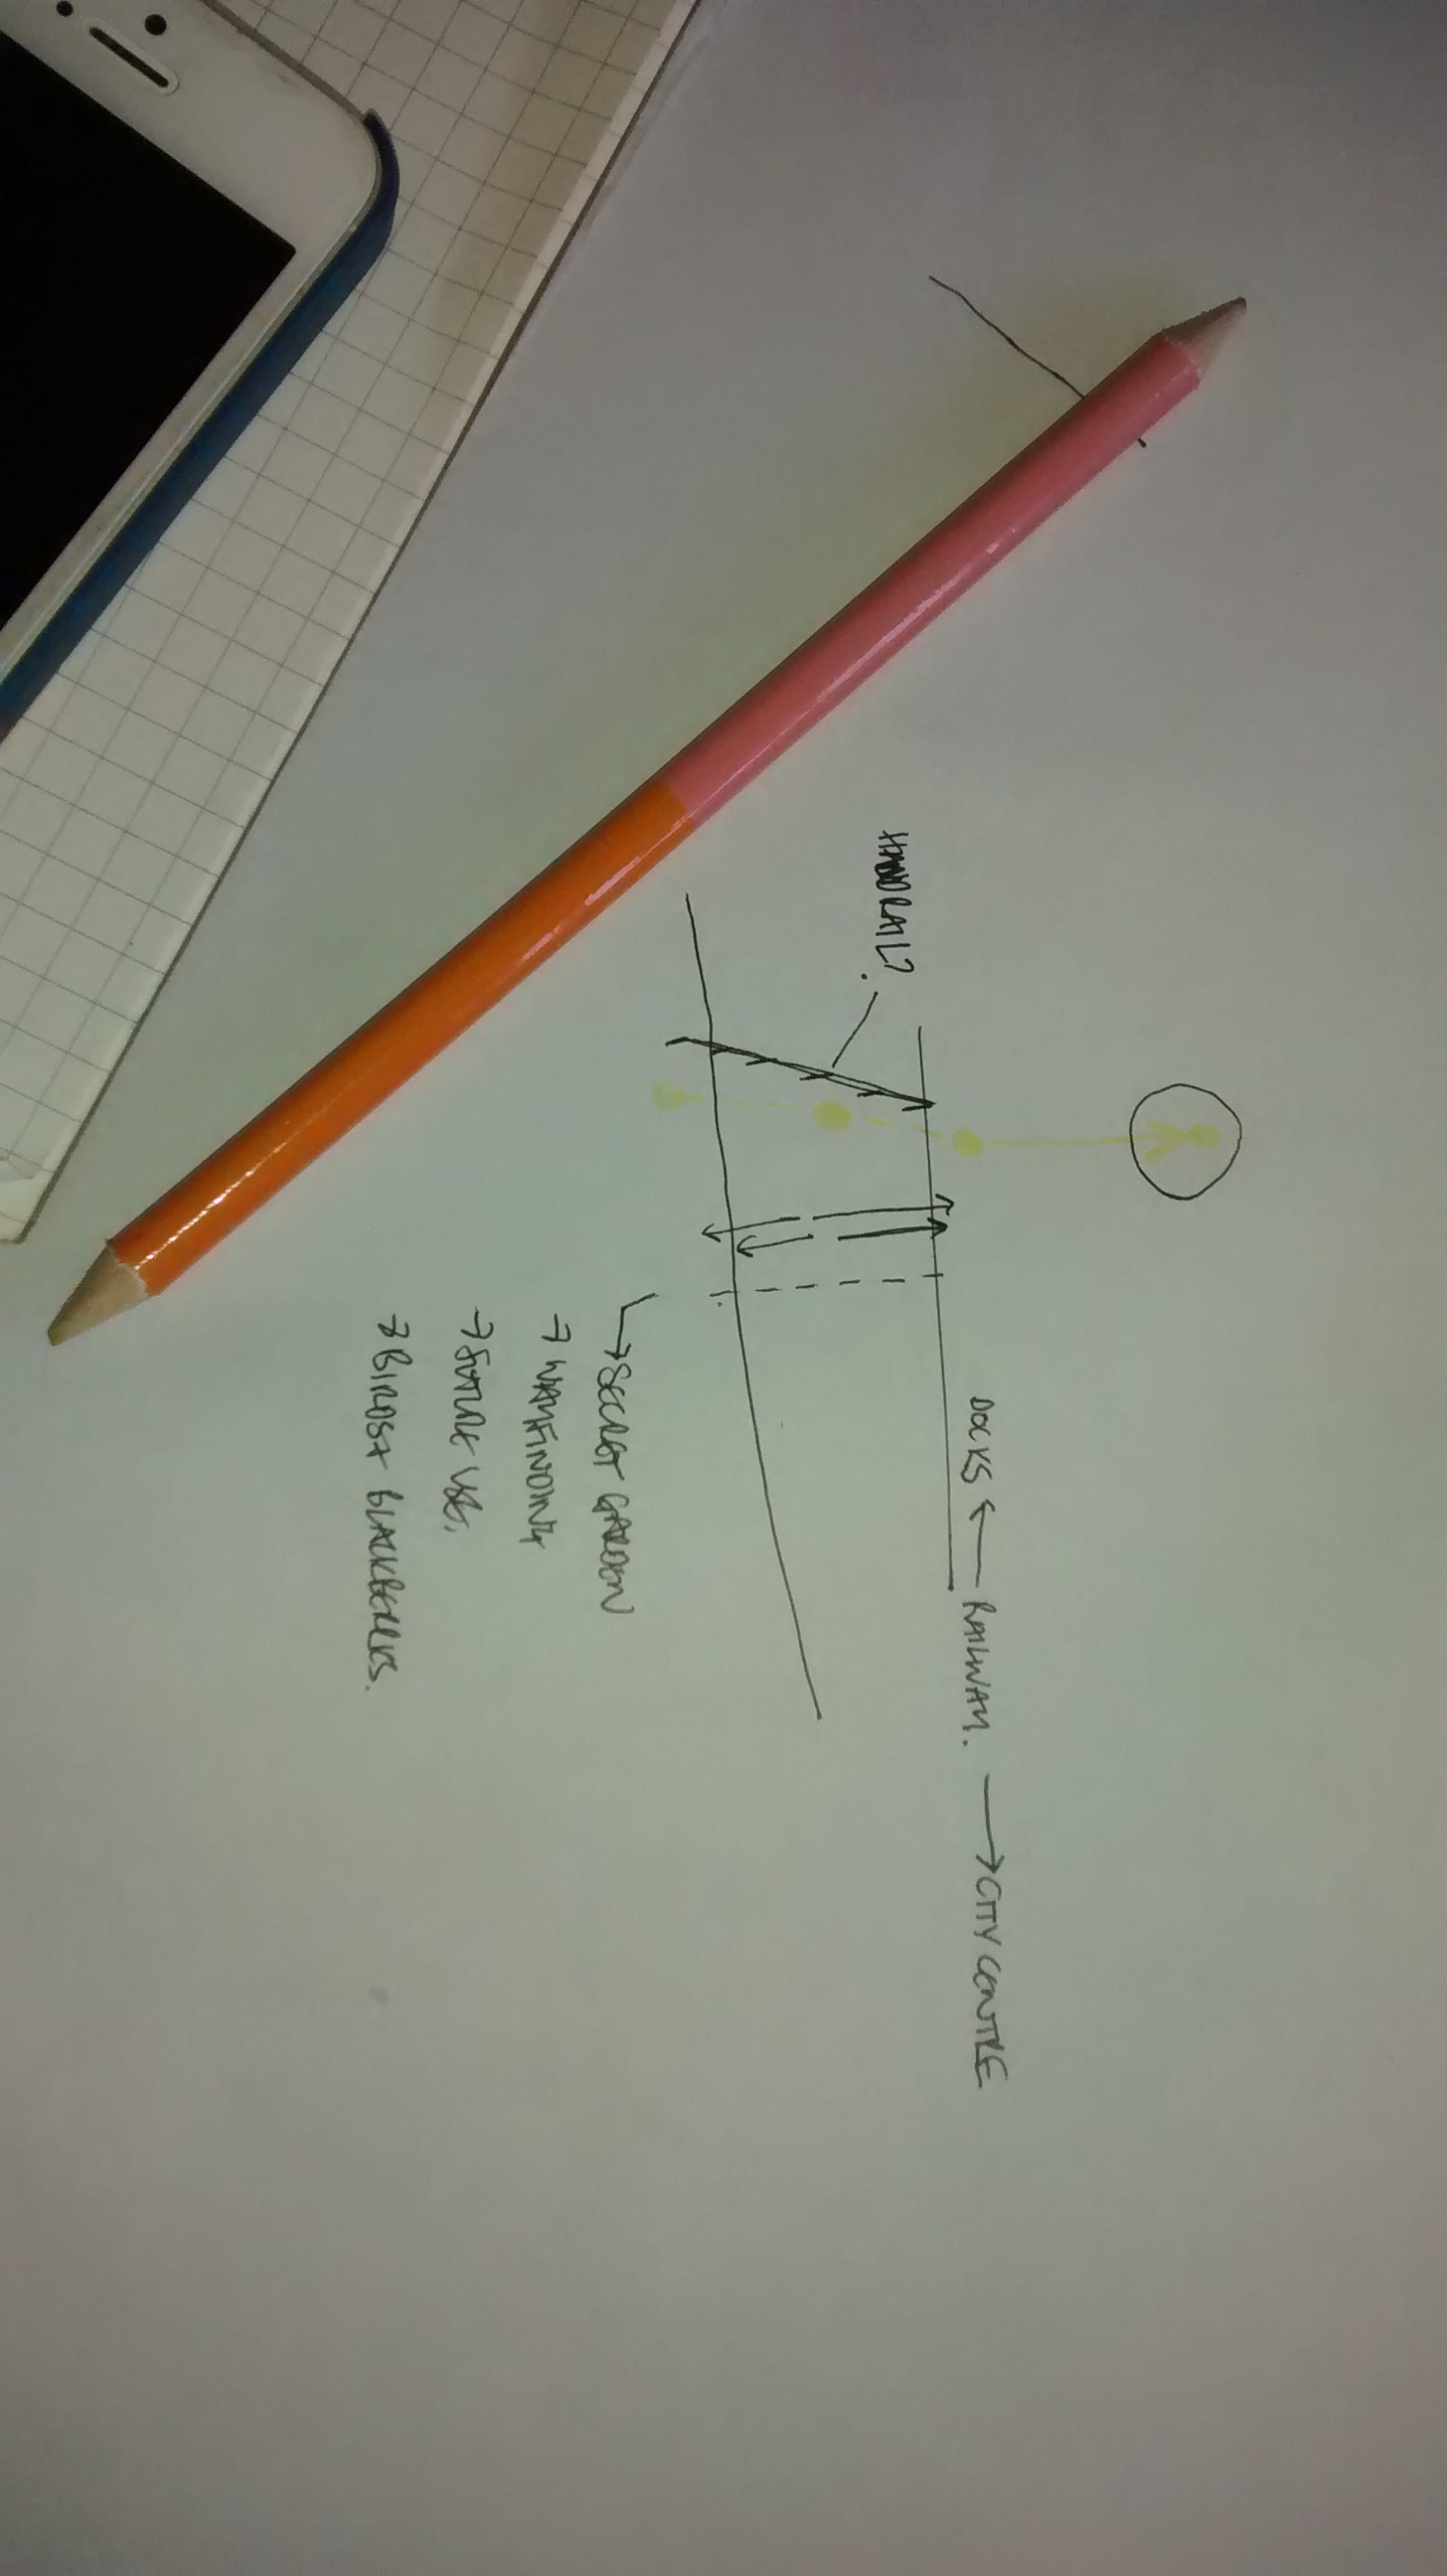 HANDRAIL?
DOCKS ← RAILWAY. → CITY CENTRE
→ SECRET GARDEN
→ WAYFINDING
→ FUTURE USE.
→ BIRDS + BLACKBERRIES.